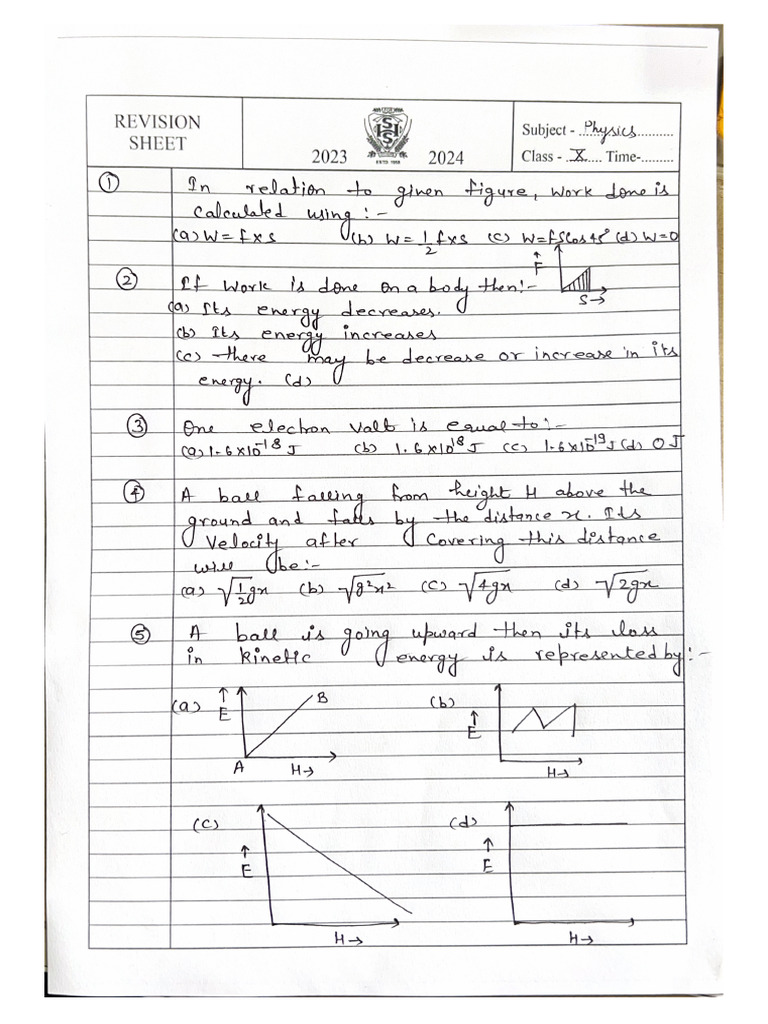 REVISION
SHEET
2023 2024
Subject - Physics
Class - X Time-
① In relation to given figure, work done is
calculated using :-
(a) W = f x s (b) W = 1/2 f x s (c) W = fscos45° (d) W = 0
② If work is done on a body then:-
F
S→
(a) Its energy decreases.
(b) Its energy increases
(c) there may be decrease or increase in its
energy. (d)
③ One electron Valt is equal to:-
(a) 1.6×10⁻¹⁸ J (b) 1.6×10¹⁸ J (c) 1.6×10⁻¹⁹ J (d) 0 J
④ A ball falling from height H above the
ground and falls by the distance x. Its
Velocity after Covering this distance
will be:-
(a) √1/2gx (b) √g²x² (c) √4gx (d) √2gx
⑤ A ball is going upward then its loss
in kinetic energy is represented by:-
(a) ↑ E B
A H→
(b) ↑ E
H→
(c) ↑ E
H→
(d) ↑ E
H→